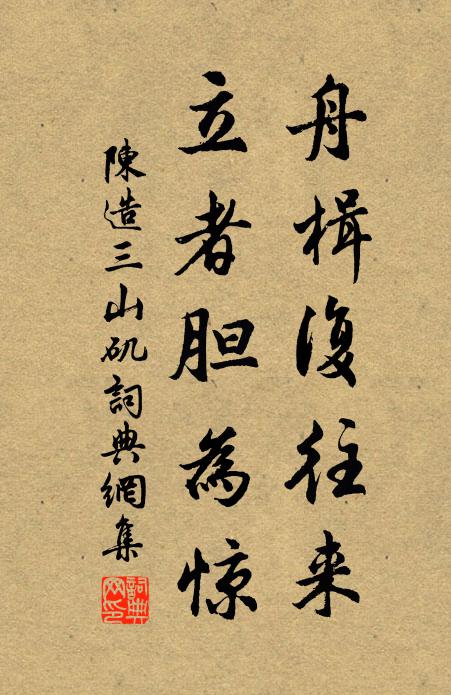 舟楫復往来
立者胆為惊
陳造三山矶詞典網集
詞典網印